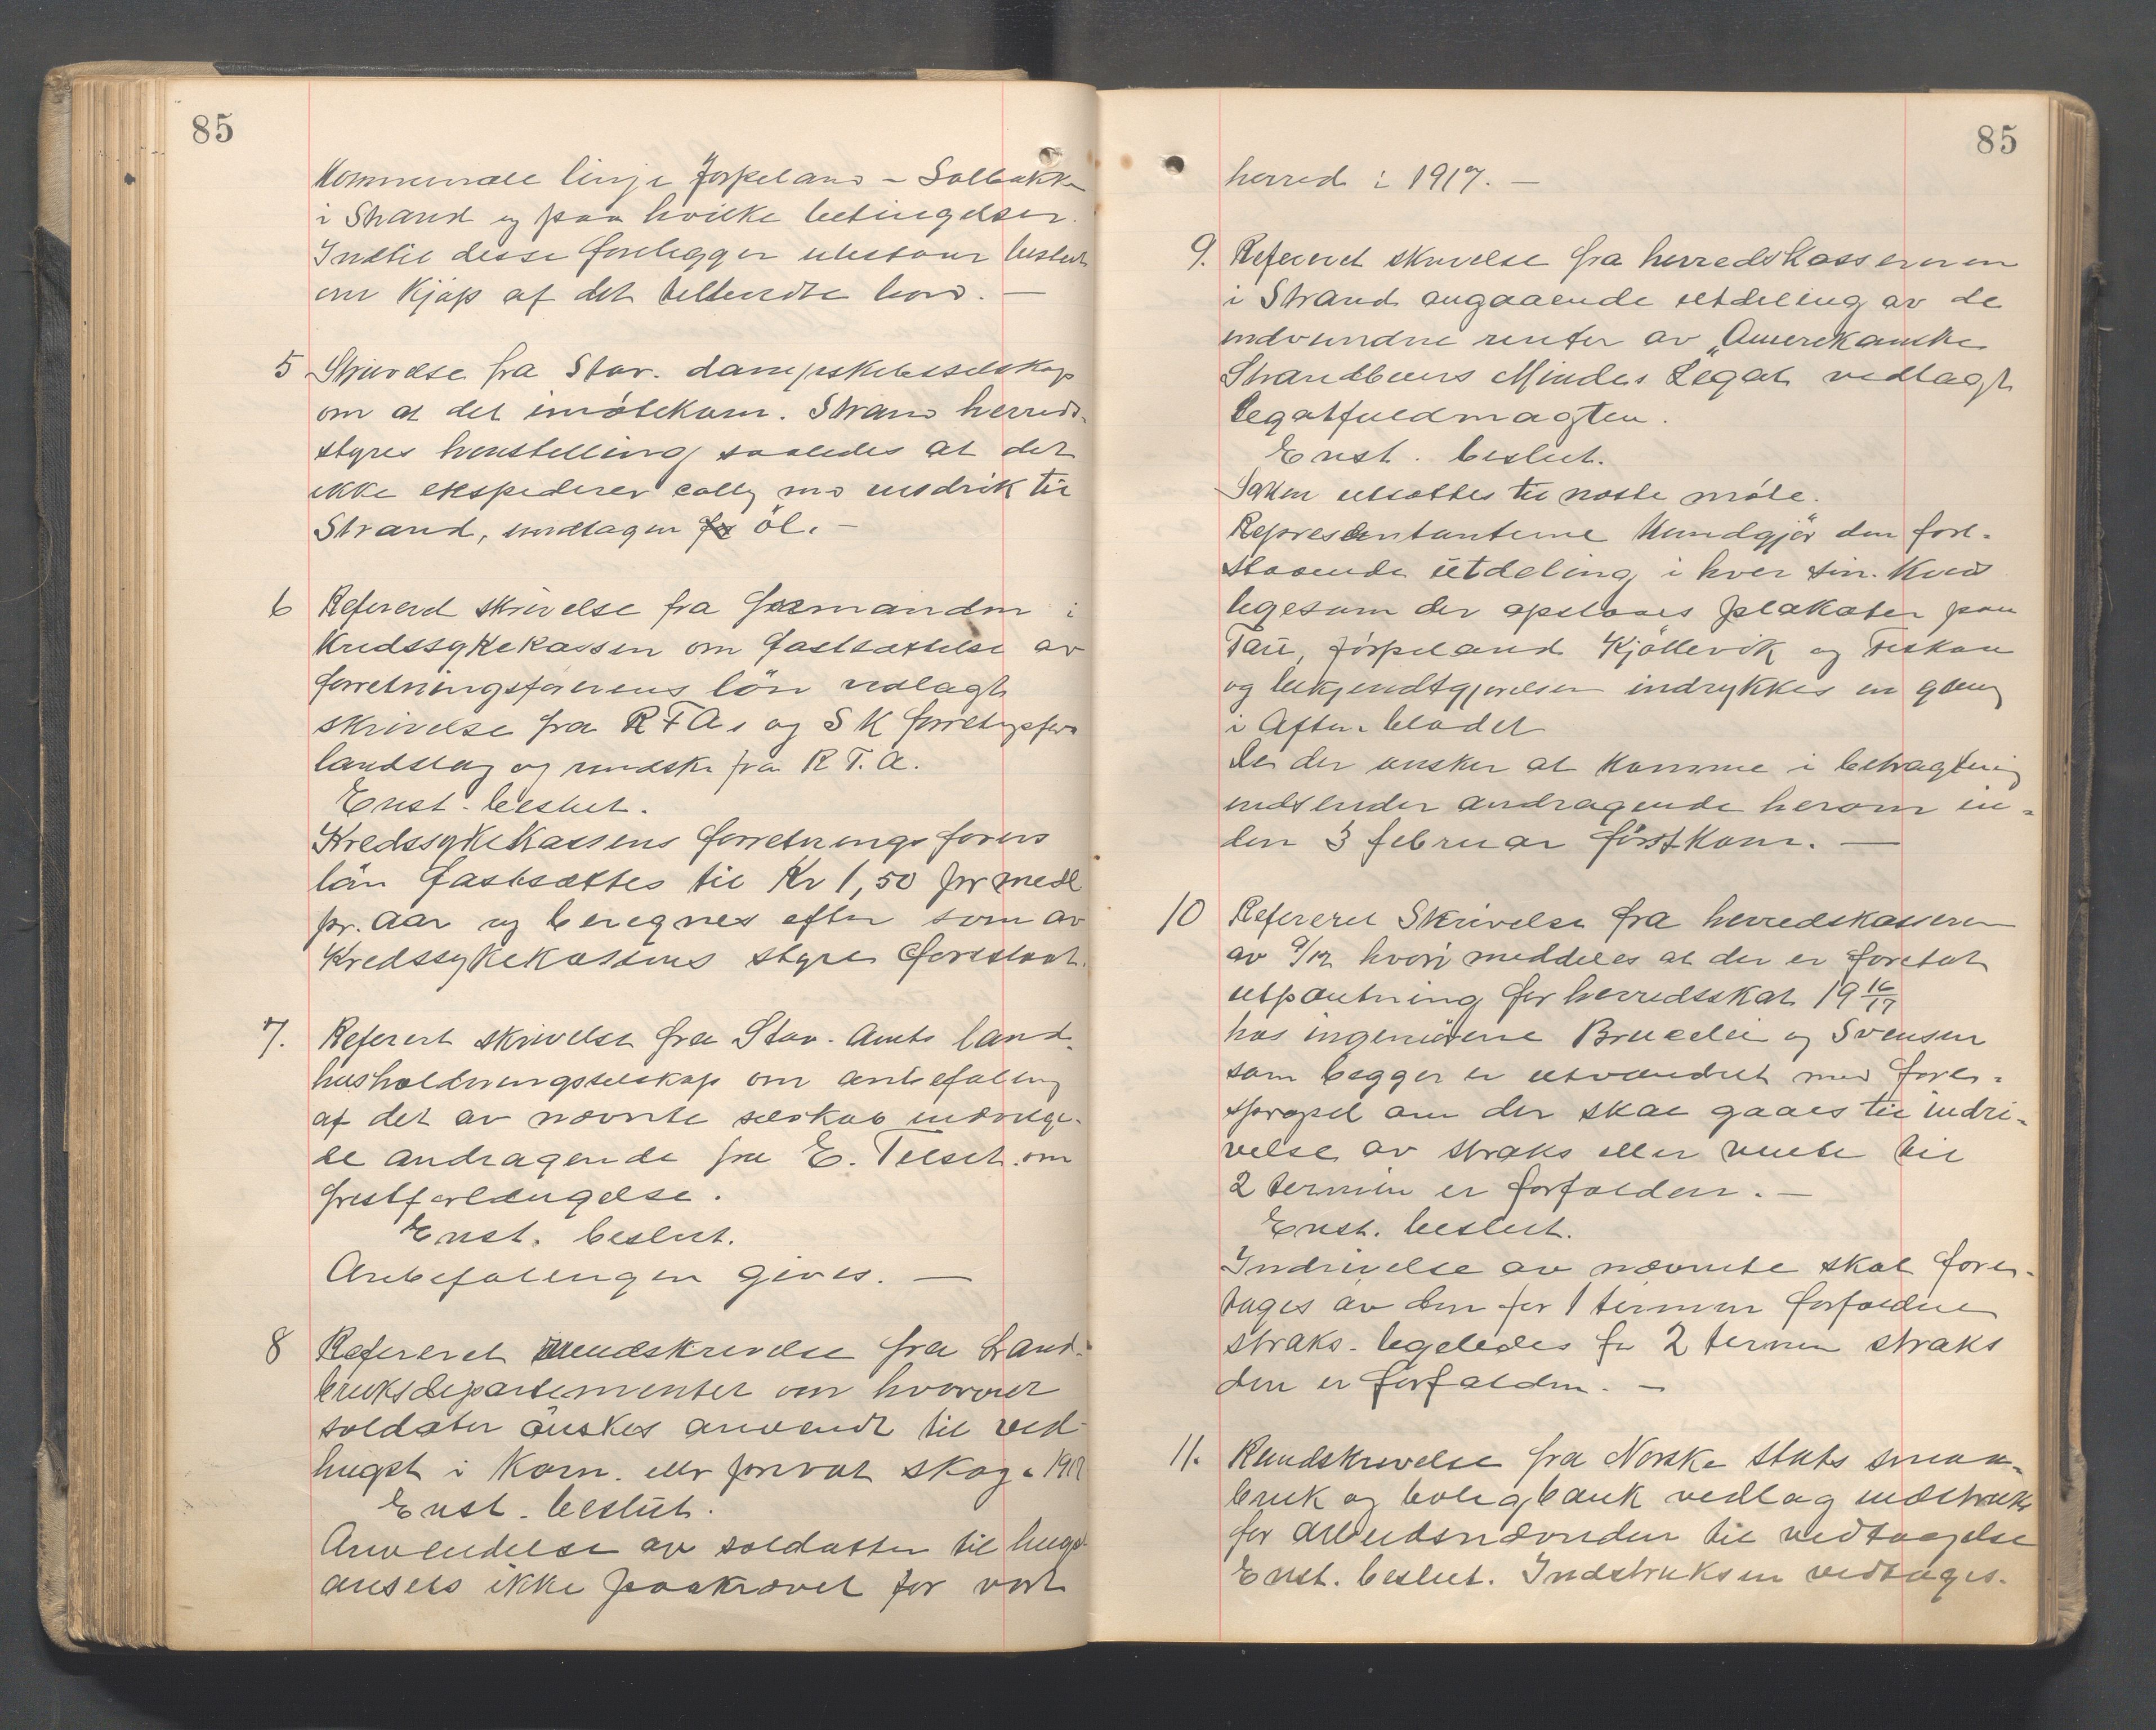 85
Kommunale linje Jørpeland - Solbakk
i Strand og paa hvilke betingelser.
Indtil disse foreligger utestaar beslut
om Kjøp af det tilbudte
5 Skrivelse fra Stav. dampskibsselskap
om at det imøtekom. Strand herreds-
styres henstilling saaledes at det
ikke ekspederer colly me rusdrik til
Strand, undtagen øl. -
6 Refererd skrivelse fra formanden i
Kredssykekassen om fastsættelse av
forretningsførerens løn vedlagt
skrivelse fra R T A. og S K forretngsfør
landslag og rundskr fra R T. A.
Enst. beslut.
Kredssykekassens forretnings førers
løn fastsættes til Kr 1,50 pr medl
pr. aar og beregnes efter som av
Kredssykekassens styre foreslaat.
7. Referert skrivelse fra Stav. Amts land-
husholdningsselskap om anbefaling
af det av nævnte selskab
de andragende fra E. om
fristforlængelse.
Enst. beslut.
Anbefalingen gives. -
8 Refereret rundskrivelse fra Land-
bruksdepartementet om hvorvidt
soldater ønskes anvendt til ved-
hugst i Kom. eller privat skog i 1917
Enst. beslut.
Anvendelse av soldatter til hugst
ansees ikke paakrævet for vort
85
herred i 1917. -
9. Refereret skrivelse fra herredskassereren
i Strand angaaende utdeling av de
indvundne renter av "Amerekanske
Strandbuers Mindes Legat vedlagt
legatfuldmagten.
Enst. beslut.
Saken utsættes til næste møte.
Representanterne Kundgjør den fore-
staaende utdeling i hver sin Kreds
ligesom der opslaaes plakater paa
Tau, Jørpeland Kjøllevik og Fiskaa
og bekjendtgjørelsen indrykkes en gang
i Aften-bladet
De der ønsker at komme i betragtning
indsender andragende herom in-
den 3 februar førstkom. -
10 Refereret Skrivelse fra herredskasseren
av 9/12 hvori meddeles at der er foretat
utpantning for herredsskat 19 16/17
hos ingeniørene og Svensen
som begger er utvandret med fore-
spørsel om der skal gaaes til indri-
velse av straks eller vente til
2 termin er forfalden. -
Enst. beslut.
Indrivelse av nævnte skat fore-
tages av den for 1 termin forfaldne
straks. ligeledes for 2 termin straks
den er forfalden. -
11. Rundskrivelse fra Norske stats smaa-
bruk og boligbank vedlag indstruks
for arbeidsnævnden til vedtagelse
Enst. beslut. Indstruksen vedtages.